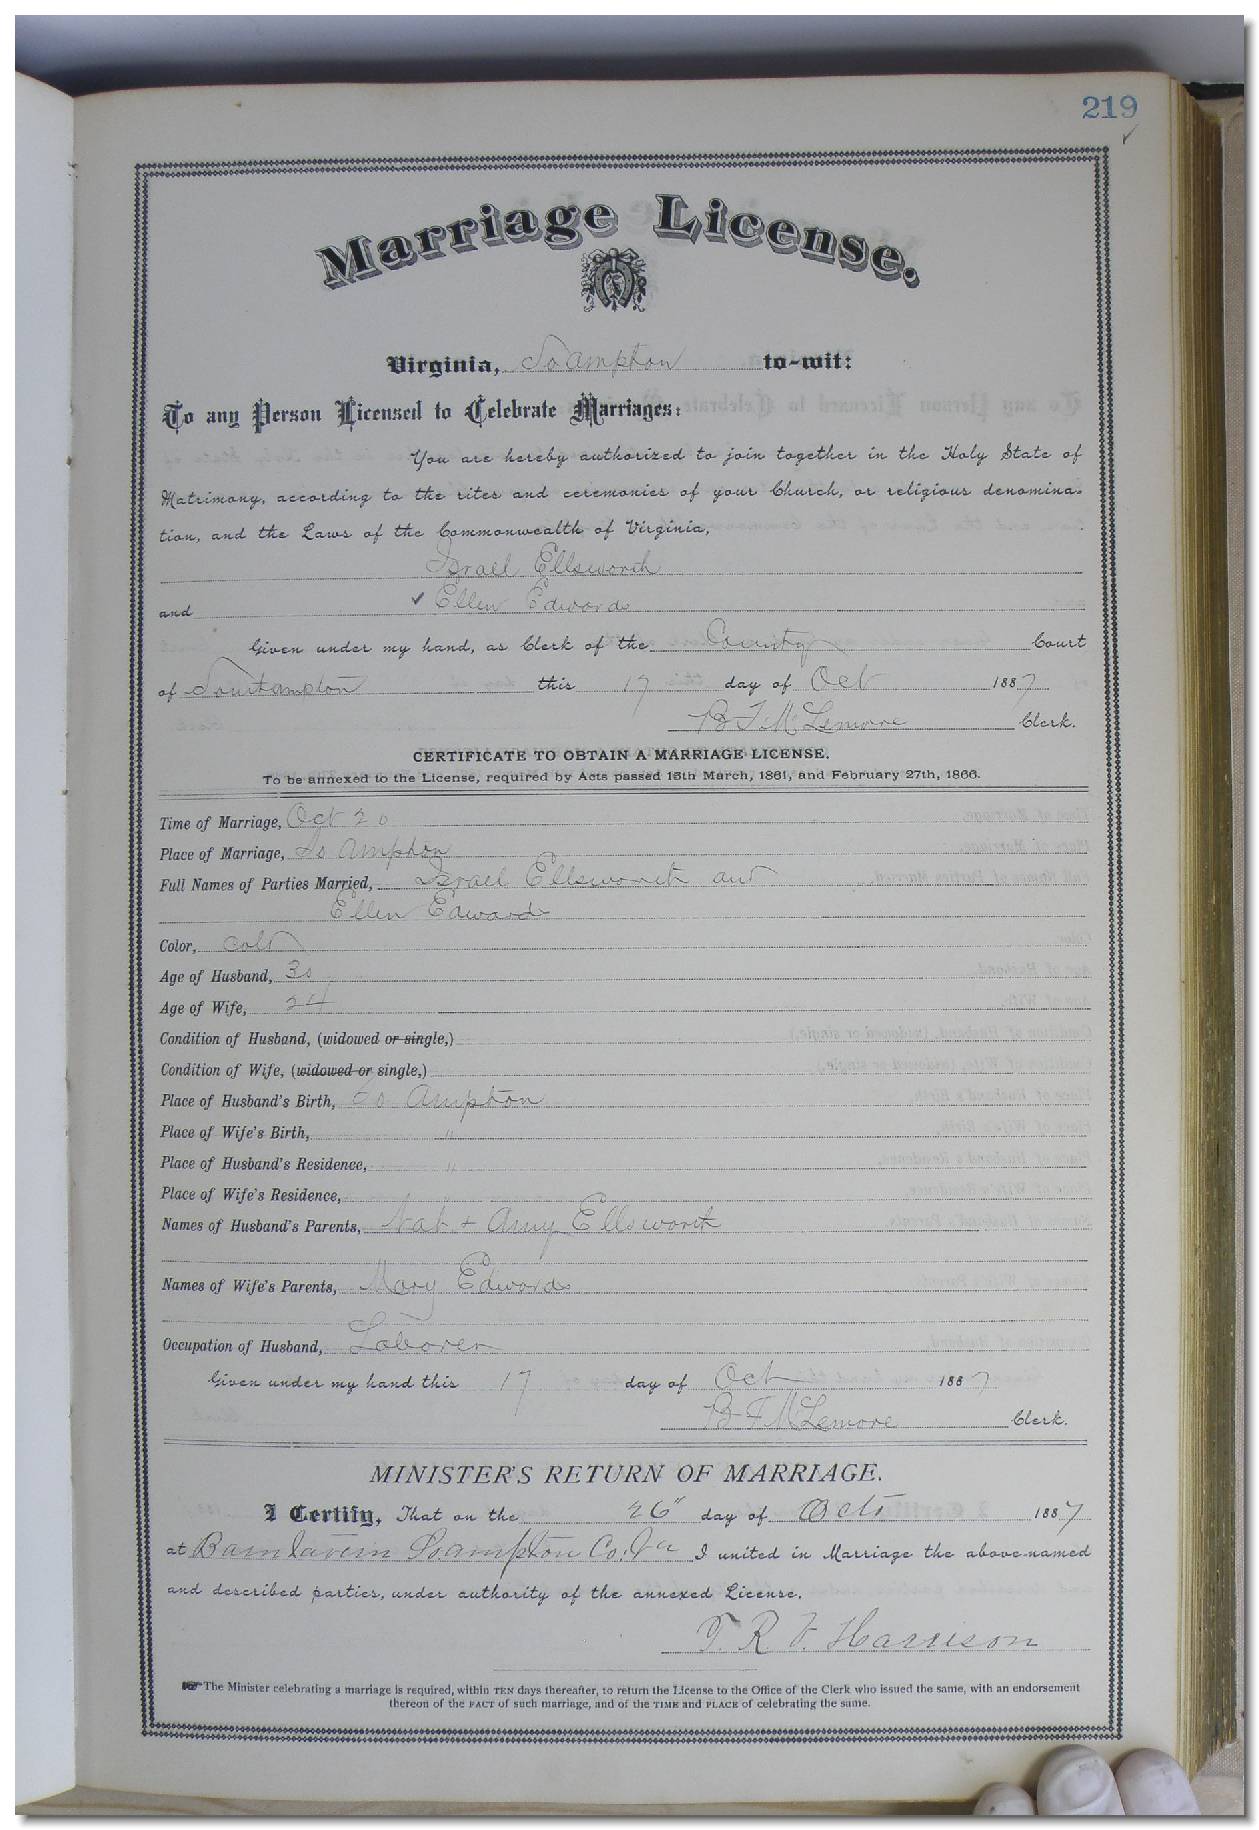 219
Marriage License.
Virginia, So ampton to-wit:
To any Person Licensed to Celebrate Marriages:
You are hereby authorized to join together in the Holy State of
Matrimony, according to the rites and ceremonies of your Church, or religious denomina-
tion, and the Laws of the Commonwealth of Virginia,
Israel Ellsworth
and Ellen Edwards
Given under my hand, as Clerk of the County Court
of Southampton this 17 day of Oct 1887
B F McLemore Clerk.
CERTIFICATE TO OBTAIN A MARRIAGE LICENSE.
To be annexed to the License, required by Acts passed 15th March, 1861, and February 27th, 1866.
Time of Marriage, Oct 20
Place of Marriage, So Ampton
Full Names of Parties Married, Israel Ellsworth and
Ellen Edwards
Color, cold
Age of Husband, 30
Age of Wife, 24
Condition of Husband, (widowed or single,)
Condition of Wife, (widowed or single,)
Place of Husband's Birth, So Ampton
Place of Wife's Birth, "
Place of Husband's Residence, "
Place of Wife's Residence, "
Names of Husband's Parents, Nat + Amy Ellsworth
Names of Wife's Parents, Mary Edwards
Occupation of Husband, Laborer
Given under my hand this 17 day of Oct 1887
B F McLemore Clerk.
MINISTER'S RETURN OF MARRIAGE.
I Certify, That on the 26" day of Oct 1887
at Soampton Co. Va I united in Marriage the above-named
and described parties, under authority of the annexed License.
T. R. V. Harrison
The Minister celebrating a marriage is required, within TEN days thereafter, to return the License to the Office of the Clerk who issued the same, with an endorsement
thereon of the FACT of such marriage, and of the TIME and PLACE of celebrating the same.